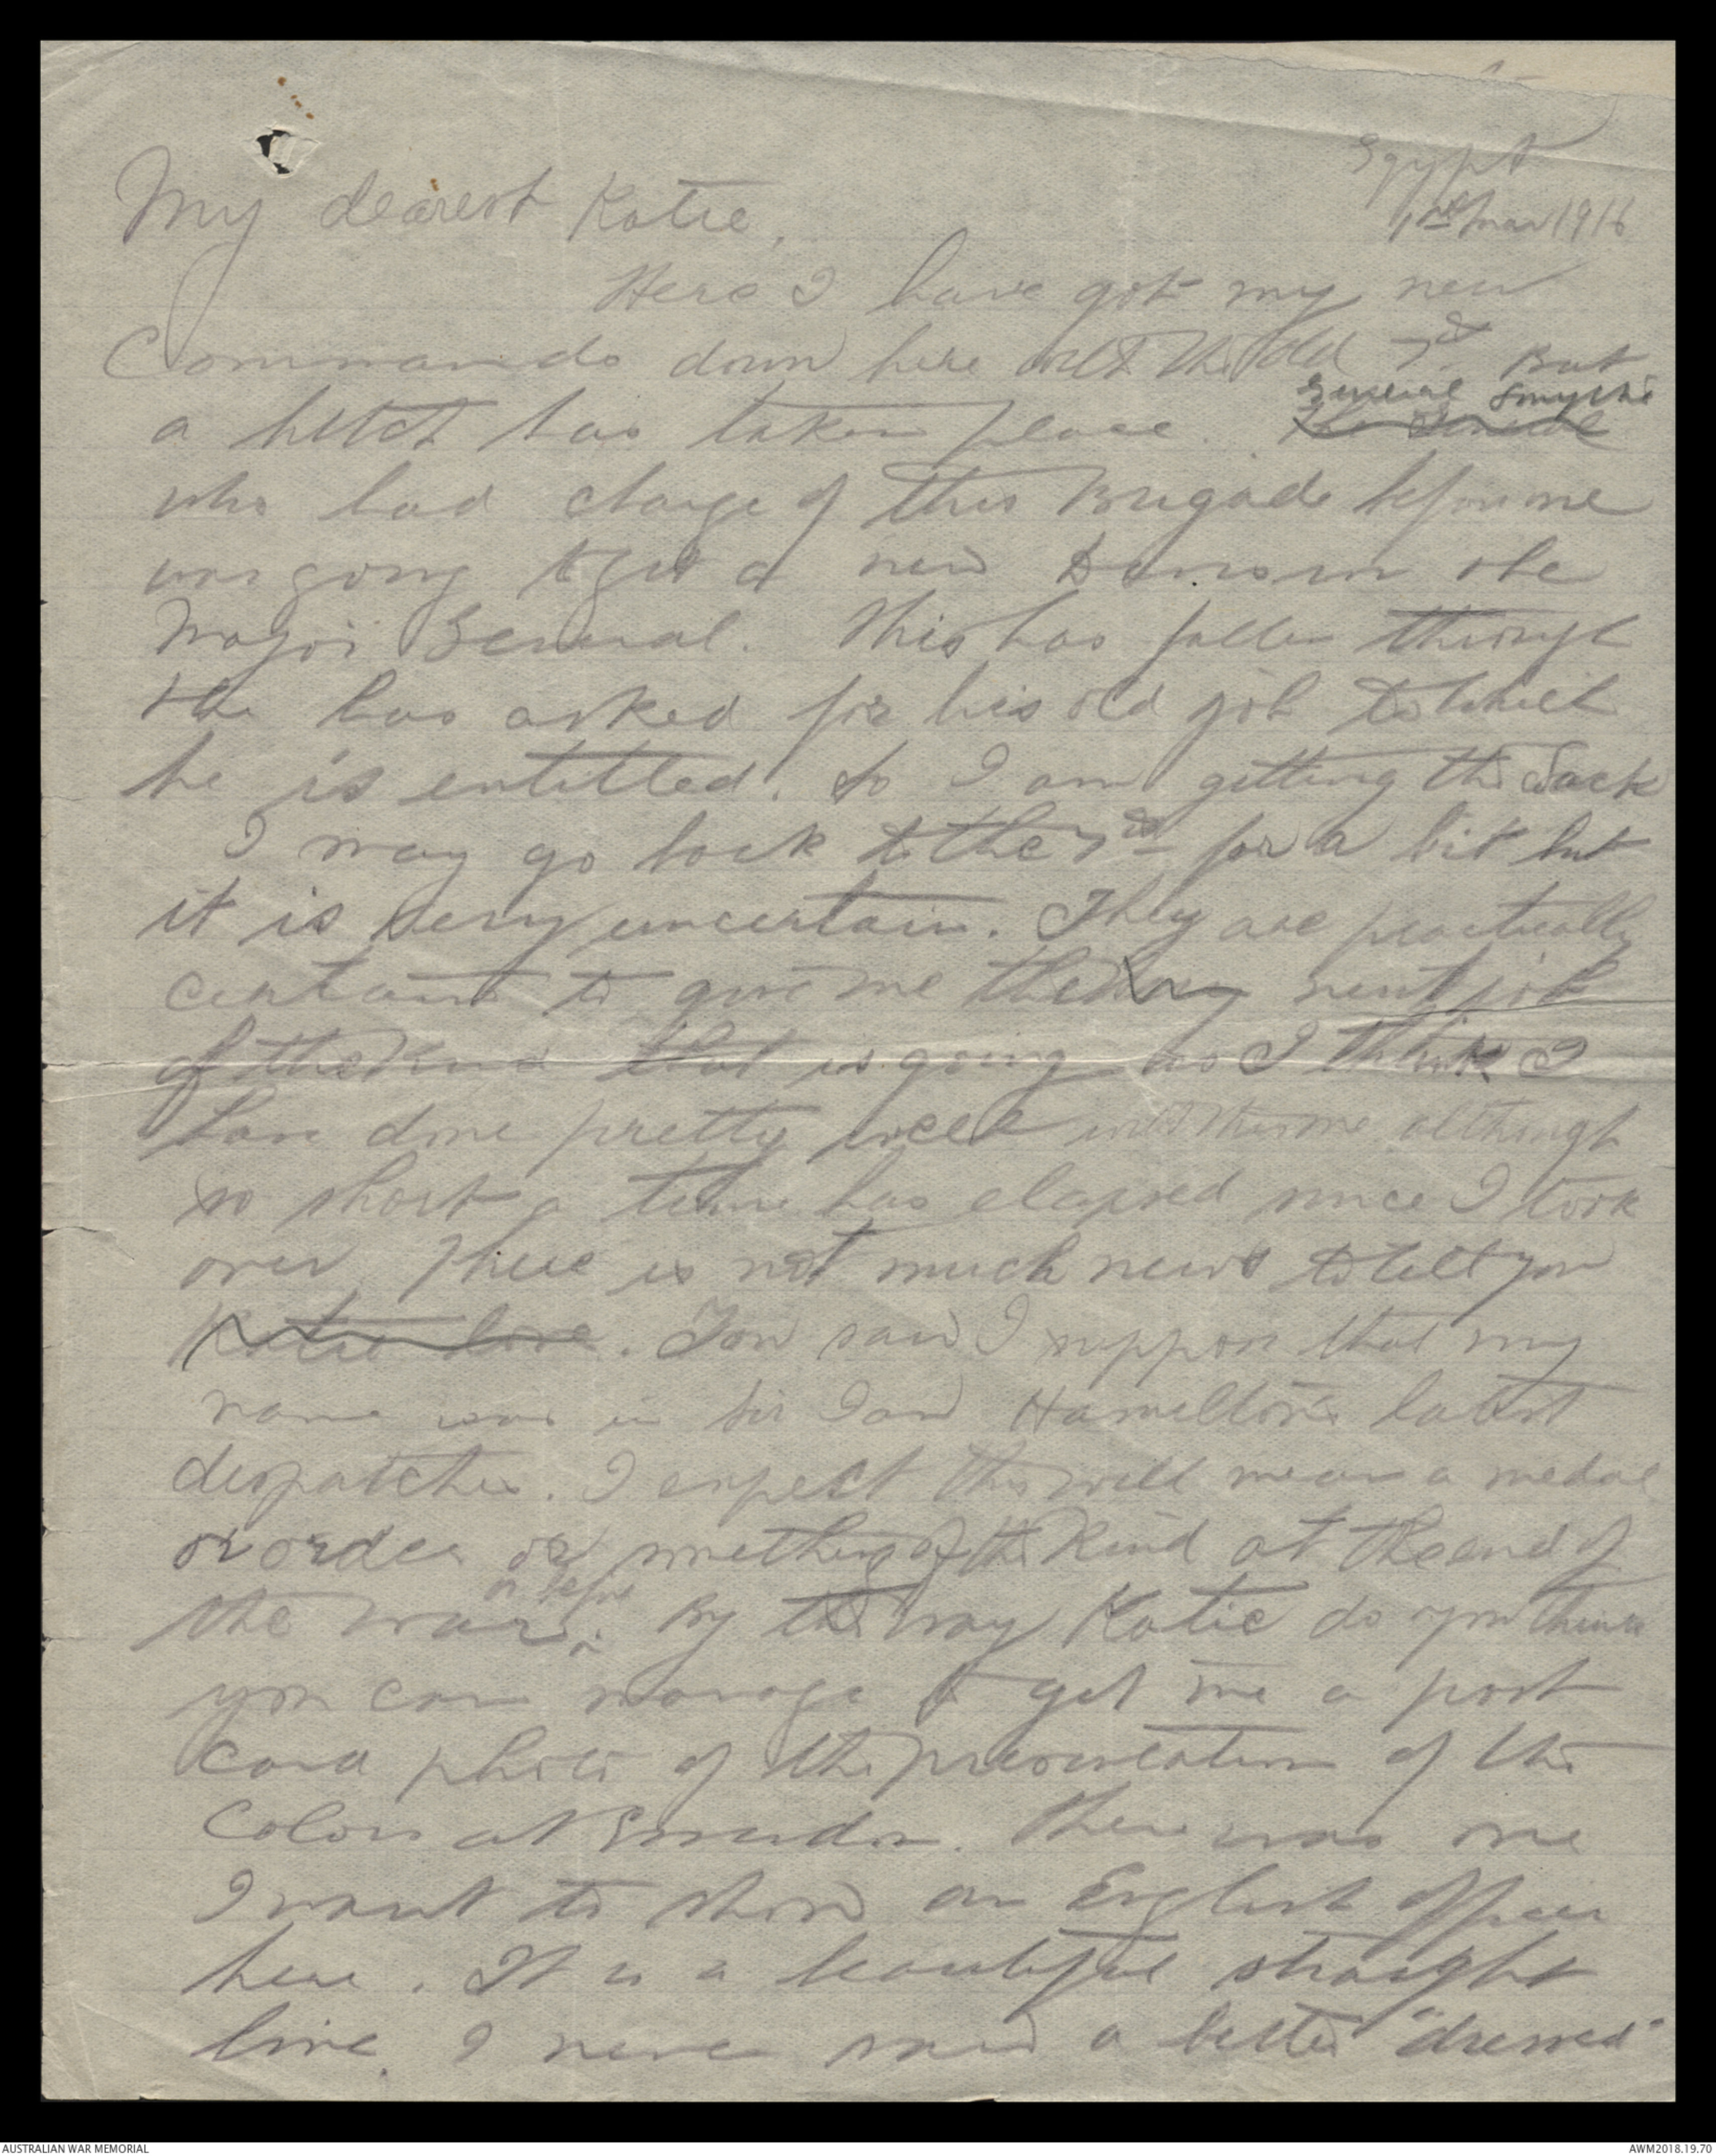 Egypt
1st Mar 1916
My dearest Katie,
Here I have got my new
Commando down here with the old 7th. But
a hitch has taken place. General Smythe
who had charge of this Brigade before me
was going to get a new Division & be
Major General. This has fallen through
& he has asked for his old job to which
he is entitled. So I am getting the Sack
I may go back to the 7th for a bit but
it is very uncertain. They are practically
certain to give me the next job
of the kind that is going as I think I
have done pretty well with this one although
so short a time has elapsed since I took
over. There is not much news to tell you
Katie love. You saw I suppose that my
name was in Sir Ian Hamilton's latest
despatches. I expect this will mean a medal
or order or something of the kind at the end of
the war or before. By the way Katie do you think
you can manage to get me a post
card photo of the presentation of the
Colors at Enoggera. There was one
I want to show an English officer
here. It is a beautiful straight
line. I never saw a better "dressed"
AUSTRALIAN WAR MEMORIAL
AWM2018.19.70